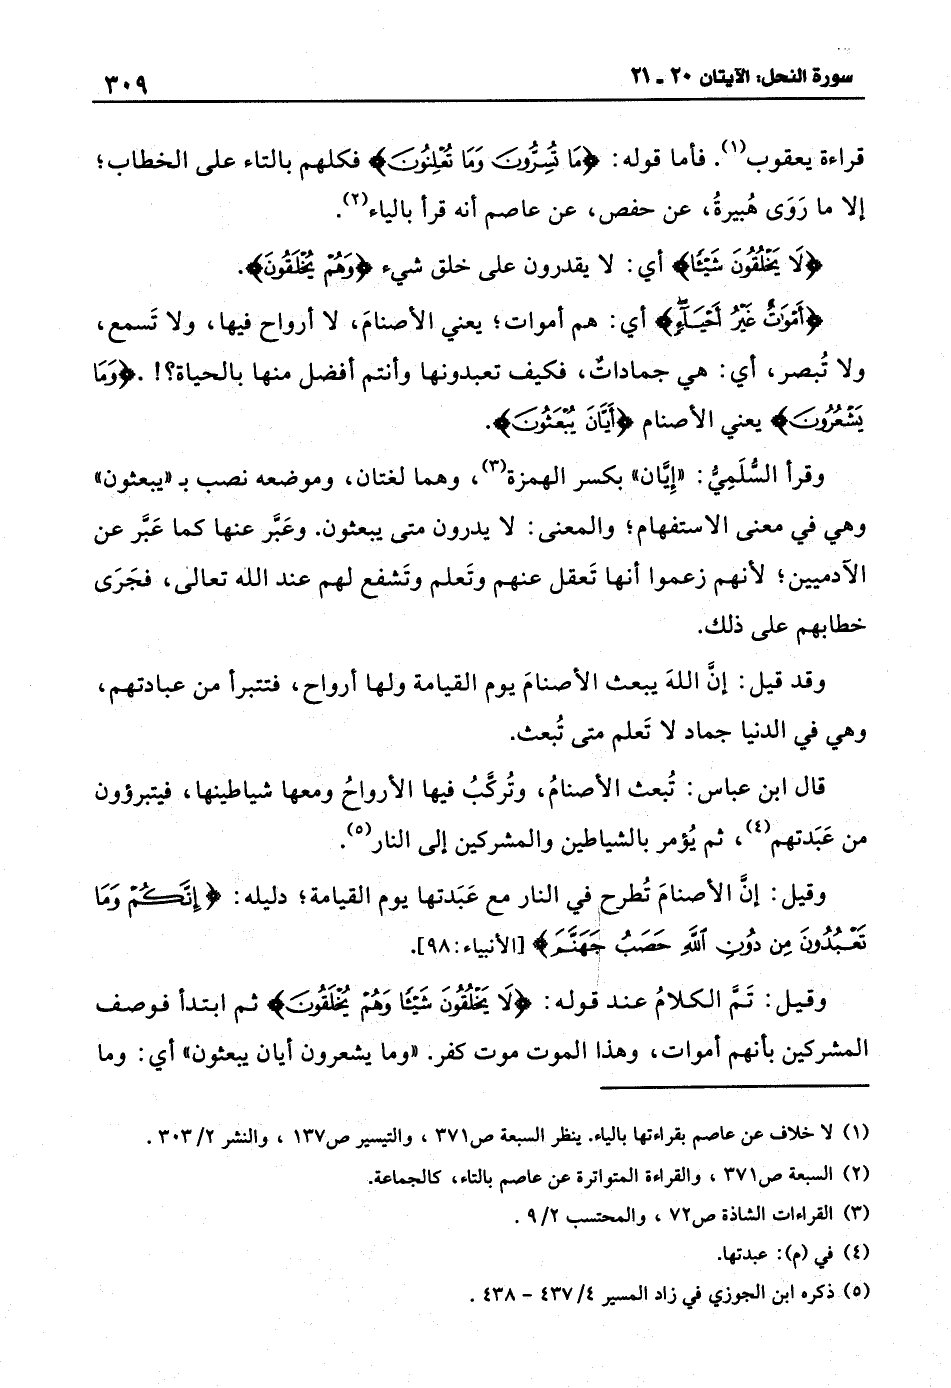 سورة النحل: الآيتان ٢٠ - ٢١
٣٠٩
قراءة يعقوب(١). فأما قوله: ﴿مَا تُسِرُّونَ وَمَا تُعْلِنُونَ﴾ فكلهم بالتاء على الخطاب؛
إلا ما رَوَى هُبيرةُ، عن حفص، عن عاصم أنه قرأ بالياء(٢).
﴿لَا يَخْلُقُونَ شَيْئًا﴾ أي: لا يقدرون على خلق شيء ﴿وَهُمْ يُخْلَقُونَ﴾.
﴿أَمْوَاتٌ غَيْرُ أَحْيَاءٍ﴾ أي: هم أموات؛ يعني الأصنامَ، لا أرواح فيها، ولا تَسمع،
ولا تُبصر، أي: هي جماداتٌ، فكيف تعبدونها وأنتم أفضل منها بالحياة؟! .﴿وَمَا
يَشْعُرُونَ﴾ يعني الأصنام ﴿أَيَّانَ يُبْعَثُونَ﴾.
وقرأ السُّلَمِيُّ: «إِيَّان» بكسر الهمزة(٣)، وهما لغتان، وموضعه نصب بـ «يبعثون»
وهي في معنى الاستفهام؛ والمعنى: لا يدرون متى يبعثون. وعَبَّر عنها كما عَبَّر عن
الآدميين؛ لأنهم زعموا أنها تَعقل عنهم وتَعلم وتَشفع لهم عند الله تعالى، فجَرَى
خطابهم على ذلك.
وقد قيل: إنَّ اللهَ يبعث الأصنامَ يوم القيامة ولها أرواح، فتتبرأ من عبادتهم،
وهي في الدنيا جماد لا تَعلم متى تُبعث.
قال ابن عباس: تُبعث الأصنامُ، وتُركَّبُ فيها الأرواحُ ومعها شياطينها، فيتبرؤون
من عَبَدتهم(٤)، ثم يُؤمر بالشياطين والمشركين إلى النار(٥).
وقيل: إنَّ الأصنامَ تُطرح في النار مع عَبَدتها يوم القيامة؛ دليله: ﴿إِنَّكُمْ وَمَا
تَعْبُدُونَ مِن دُونِ ٱللَّهِ حَصَبُ جَهَنَّمَ﴾ [الأنبياء:٩٨].
وقيل: تَمَّ الكلامُ عند قوله: ﴿لَا يَخْلُقُونَ شَيْئًا وَهُمْ يُخْلَقُونَ﴾ ثم ابتدأ فوصف
المشركين بأنهم أموات، وهذا الموت موت كفر. «وما يشعرون أيان يبعثون» أي: وما
(١) لا خلاف عن عاصم بقراءتها بالياء. ينظر السبعة ص٣٧١ ، والتيسير ص١٣٧ ، والنشر ٣٠٣/٢ .
(٢) السبعة ص٣٧١ ، والقراءة المتواترة عن عاصم بالتاء، كالجماعة.
(٣) القراءات الشاذة ص٧٢ ، والمحتسب ٩/٢ .
(٤) في (م): عبدتها.
(٥) ذكره ابن الجوزي في زاد المسير ٤٣٧/٤ - ٤٣٨ .